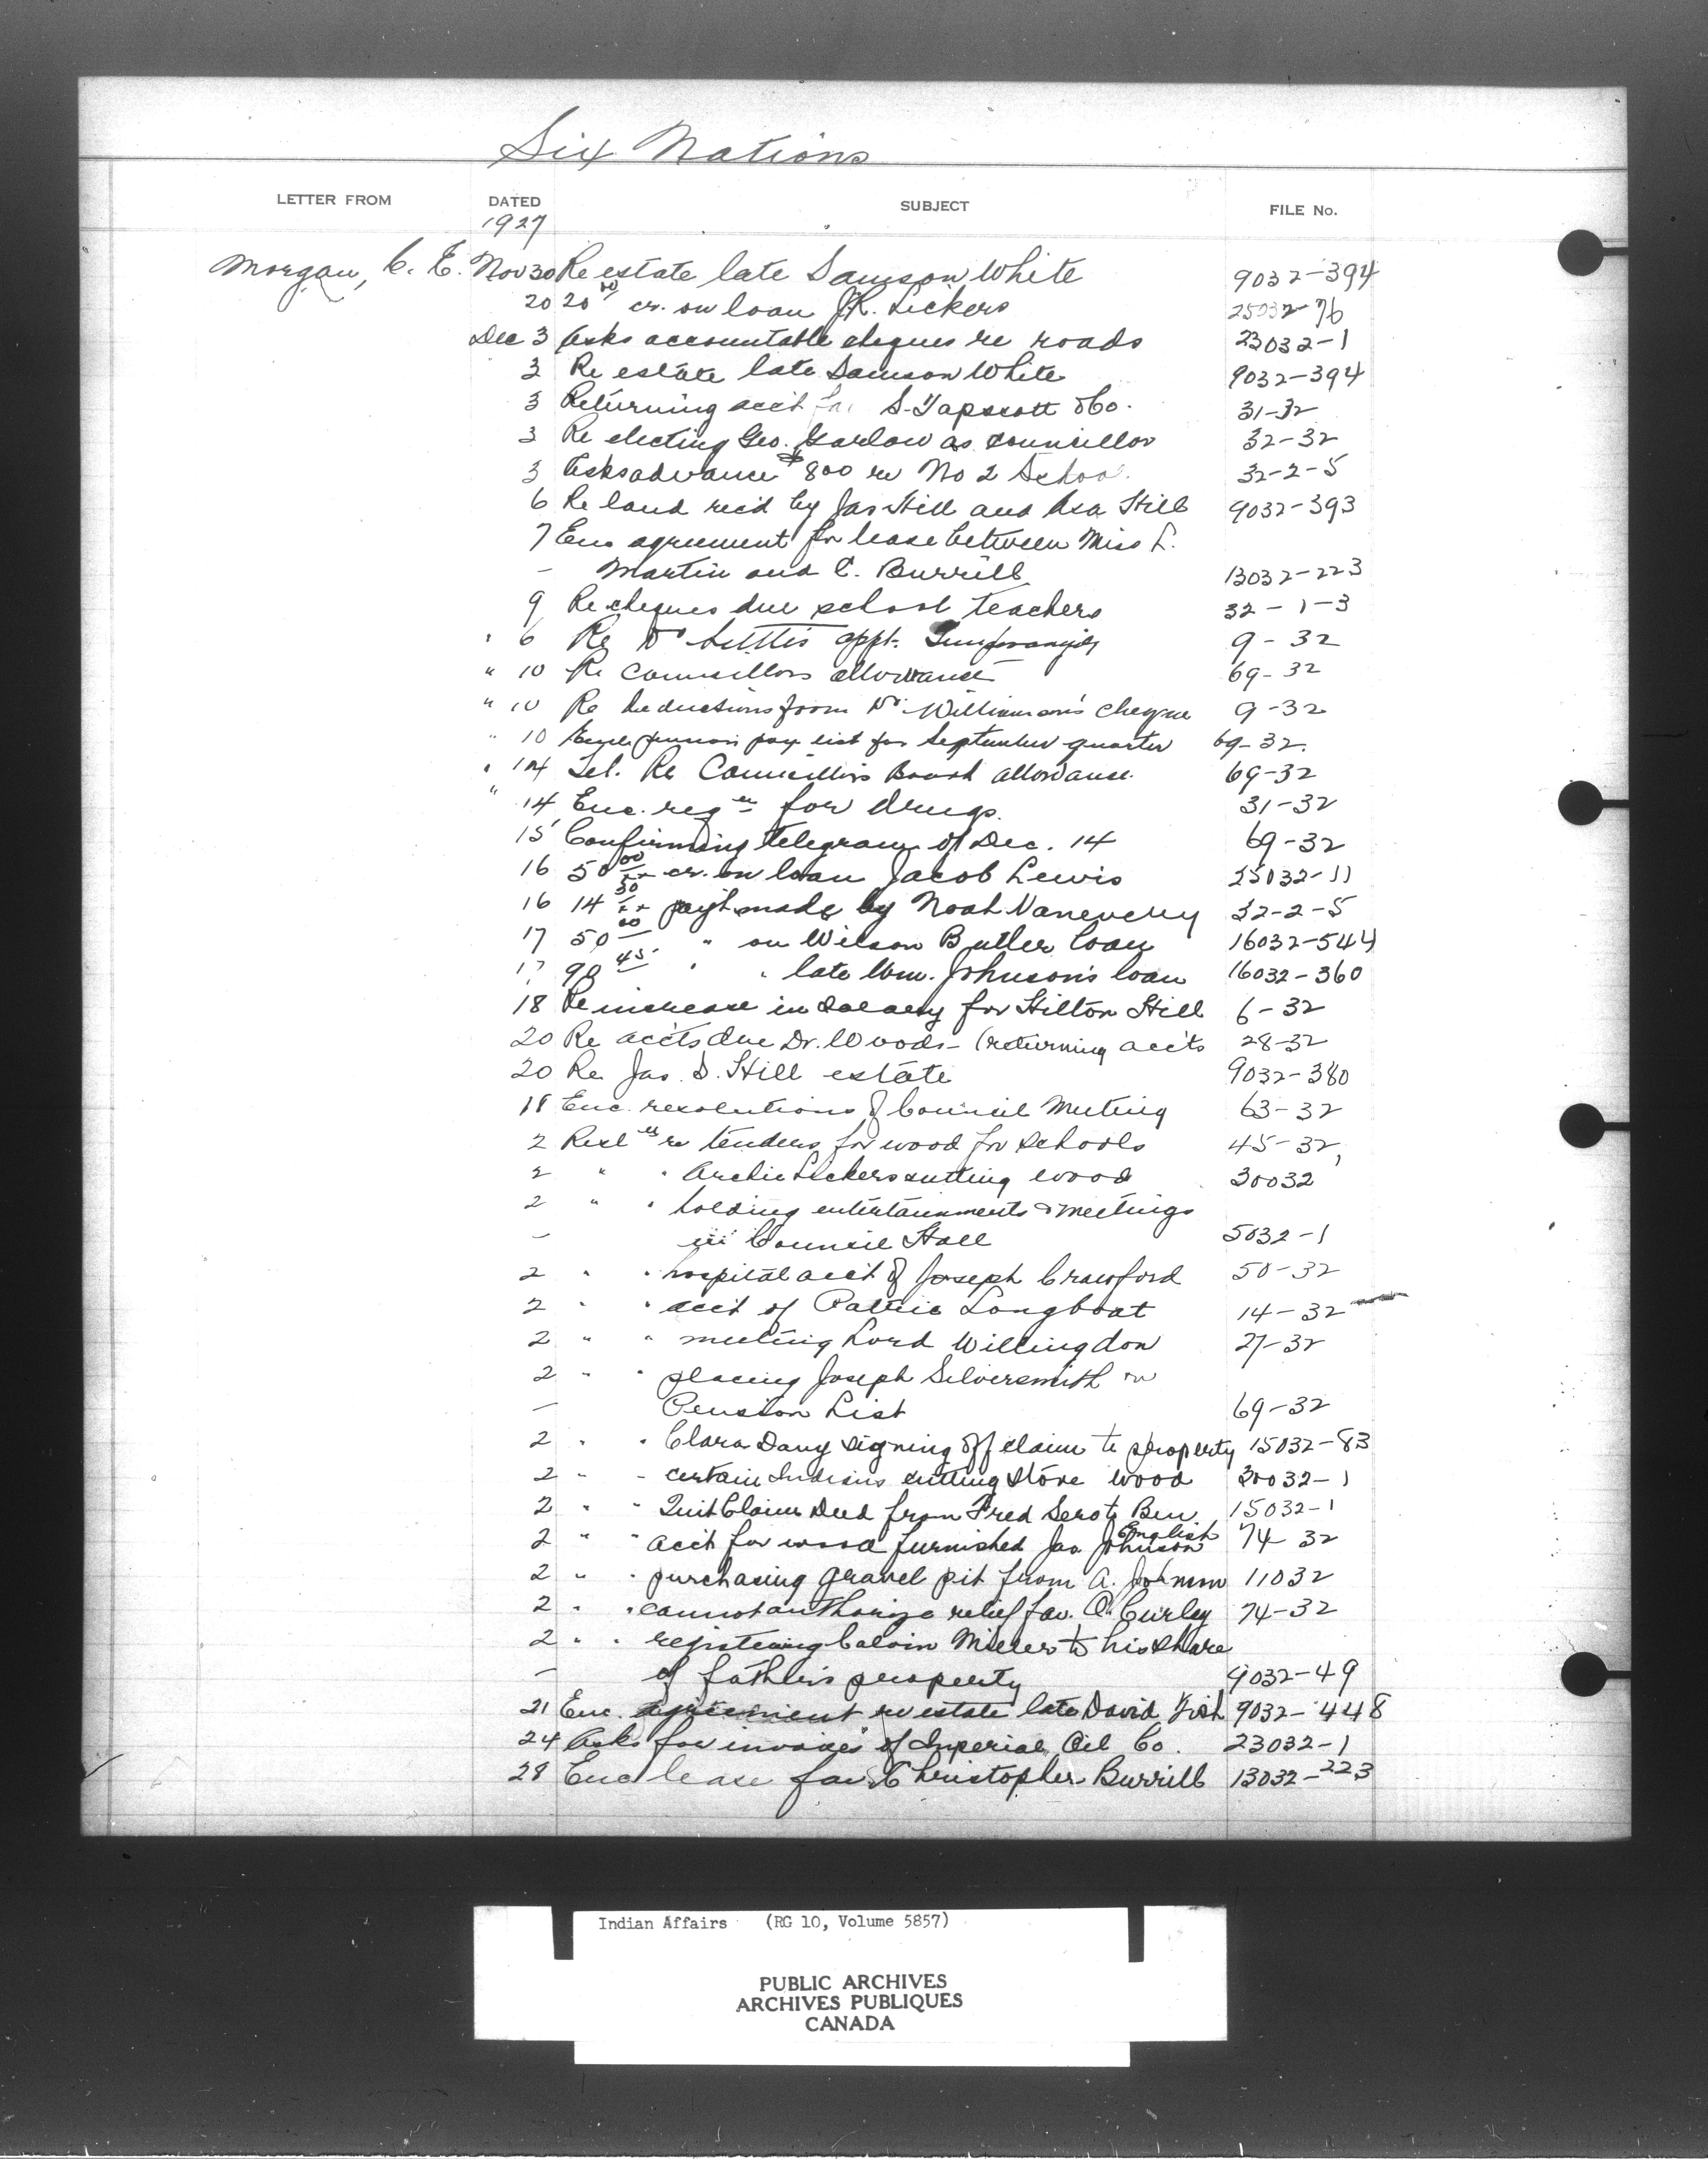 Six Nations
LETTER FROM DATED SUBJECT FILE No.
1927
Morgan, C. E. Nov 30 Re estate late Samson White 9032-394
20 20 00 cr. on loan J.R. Lickers 25032-76
Dec 3 Asks accountable cheques re roads 23032-1
3 Re estate late Samson White 9032-394
3 Returning acc't for S. Tapscott & Co. 31-32
3 Re electing Geo. Garlow as councillor 32-32
3 Asks advance $800 re No 2 School 32-2-5
6 Re land rec'd by Jas Hill and Asa Hill 9032-393
7 Enc agreement for lease between Miss L.
- Martin and C. Burrill 13032-223
9 Re cheques due school teachers 32-1-3
" 6 Re Dr appt. 9-32
" 10 Re Councillors allowance 69-32
" 10 Re deductions from Dr. Williamson's cheque 9-32
" 10 Encl. pension pay list for September quarter 69-32.
" 14 Tel. Re Councillors Board allowance. 69-32
" 14 Enc. reqn for drugs. 31-32
15 Confirming telegram of Dec. 14 69-32
16 50 00 cr. on loan Jacob Lewis 25032-11
16 14 30 payt made by Noah Vanevery 32-2-5
17 50 00 " on Wilson Butler loan 16032-544
17 90 45 " " late Wm. Johnson's loan 16032-360
18 Re increase in salary for Hilton Hill 6-32
20 Re acc'ts due Dr. Woods - (returning acc'ts 28-32
20 Re Jas. D. Hill estate 9032-380
18 Enc. resolutions of Council Meeting 63-32
2 re tenders for wood for schools 45-32,
2 " " Archie Lickers cutting wood 30032
2 " " holding entertainments & meetings
- in Council Hall 5032-1
2 " " hospital acc't of Joseph Crawford 50-32
2 " " acc't of Longboat 14-32
2 " " meeting Lord Willingdon 27-32
2 " " placing Joseph Silversmith on
- Pension List 69-32
2 " " Clara Davy signing off claim to property 15032-83
2 " " certain Indians cutting stove wood 30032-1
2 " " Quit Claim Deed from Fred Sero to Ben 15032-1
2 " " acc't for wood furnished Jas. Johnson English 74-32
2 " " purchasing gravel pit from A. Johnson 11032
2 " " cannot authorize relief fav. Curley 74-32
2 " " registering Calvin Miller to his share
- of father's property 9032-49
21 Enc. agreement re estate late David Fish 9032-448
24 Asks for invoices of Imperial Oil Co. 23032-1
28 Enc lease fav. Christopher Burrill 13032-223
Indian Affairs (RG 10, Volume 5857)
PUBLIC ARCHIVES
ARCHIVES PUBLIQUES
CANADA